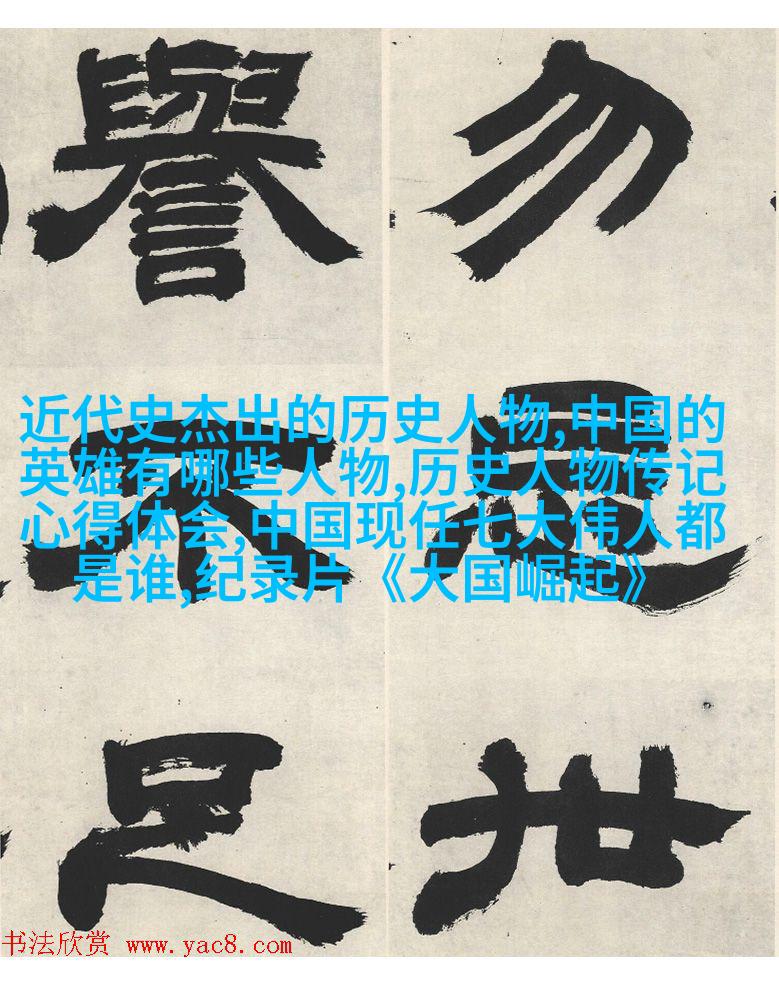 勿
世
譽不足
近代史杰出的历史人物,中国的
英雄有哪些人物,历史人物传记
心得体会,中国现任七大伟人都
是谁,纪录片《大国崛起》
书法欣赏 www.yac8.com